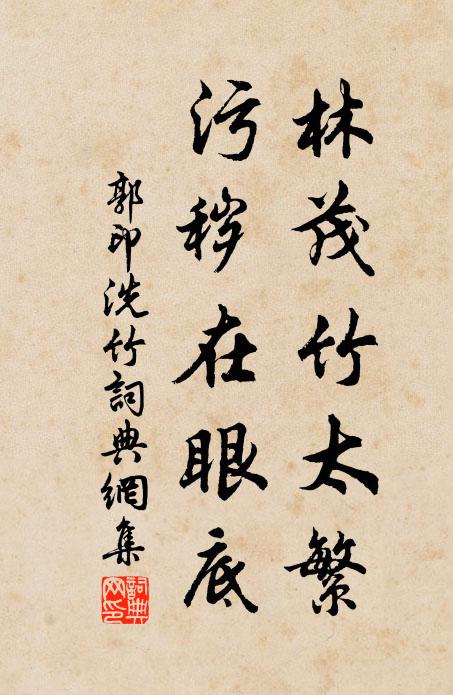 林茂竹太繁
污秽在眼底
郭印洗竹詞典網集
詞典网印